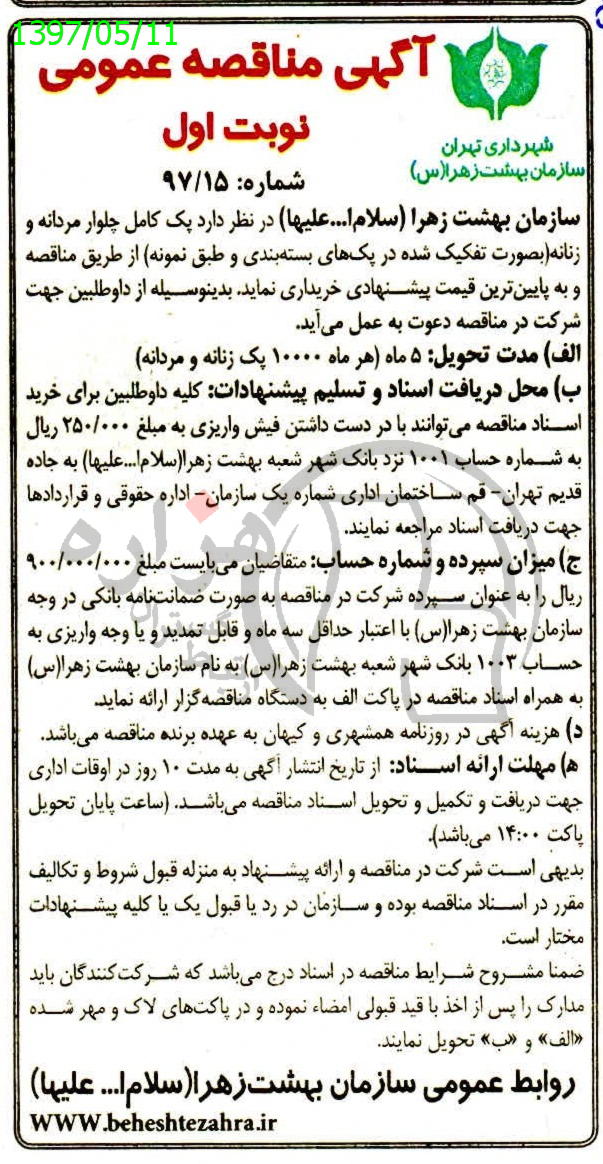 1397/05/11
آگهی مناقصه عمومی
نوبت اول
شهرداری تهران
سازمان بهشت زهرا(س)
شماره: ۹۷/۱۵
سازمان بهشت زهرا (سلام‌ا...علیها) در نظر دارد پک کامل چلوار مردانه و
زنانه(بصورت تفکیک شده در پک‌های بسته‌بندی و طبق نمونه) از طریق مناقصه
و به پایین‌ترین قیمت پیشنهادی خریداری نماید. بدینوسیله از داوطلبین جهت
شرکت در مناقصه دعوت به عمل می‌آید.
الف) مدت تحویل: ۵ ماه (هر ماه ۱۰۰۰۰ پک زنانه و مردانه)
ب) محل دریافت اسناد و تسلیم پیشنهادات: کلیه داوطلبین برای خرید
اسناد مناقصه می‌توانند با در دست داشتن فیش واریزی به مبلغ ۲۵۰/۰۰۰ ریال
به شماره حساب ۱۰۰۱ نزد بانک شهر شعبه بهشت زهرا(سلام‌ا...علیها) به جاده
قدیم تهران- قم ساختمان اداری شماره یک سازمان- اداره حقوقی و قراردادها
جهت دریافت اسناد مراجعه نمایند.
ج) میزان سپرده و شماره حساب: متقاضیان می‌بایست مبلغ ۹۰۰/۰۰۰/۰۰۰
ریال را به عنوان سپرده شرکت در مناقصه به صورت ضمانت‌نامه بانکی در وجه
سازمان بهشت زهرا(س) با اعتبار حداقل سه ماه و قابل تمدید و یا وجه واریزی به
حساب ۱۰۰۳ بانک شهر شعبه بهشت زهرا(س) به نام سازمان بهشت زهرا(س)
به همراه اسناد مناقصه در پاکت الف به دستگاه مناقصه‌گزار ارائه نماید.
د) هزینه آگهی در روزنامه همشهری و کیهان به عهده برنده مناقصه می‌باشد.
ه) مهلت ارائه اسناد: از تاریخ انتشار آگهی به مدت ۱۰ روز در اوقات اداری
جهت دریافت و تکمیل و تحویل اسناد مناقصه می‌باشد. (ساعت پایان تحویل
پاکت ۱۴:۰۰ می‌باشد).
بدیهی است شرکت در مناقصه و ارائه پیشنهاد به منزله قبول شروط و تکالیف
مقرر در اسناد مناقصه بوده و سازمان در رد یا قبول یک یا کلیه پیشنهادات
مختار است.
ضمنا مشروح شرایط مناقصه در اسناد درج می‌باشد که شرکت‌کنندگان باید
مدارک را پس از اخذ با قید قبولی امضاء نموده و در پاکت‌های لاک و مهر شده
«الف» و «ب» تحویل نمایند.
روابط عمومی سازمان بهشت‌زهرا(سلام‌ا... علیها)
WWW.beheshtezahra.ir
هزاره